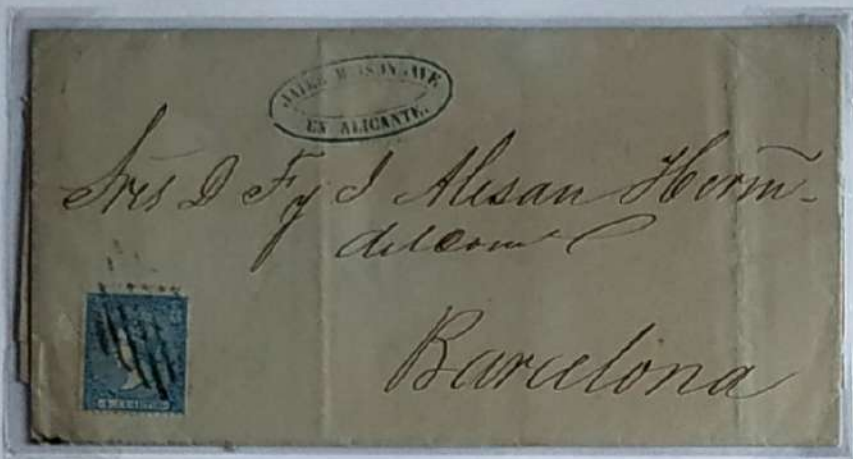 EN ALICANTE.
Sres D F y J Alesan Herm
del Com
Barcelona